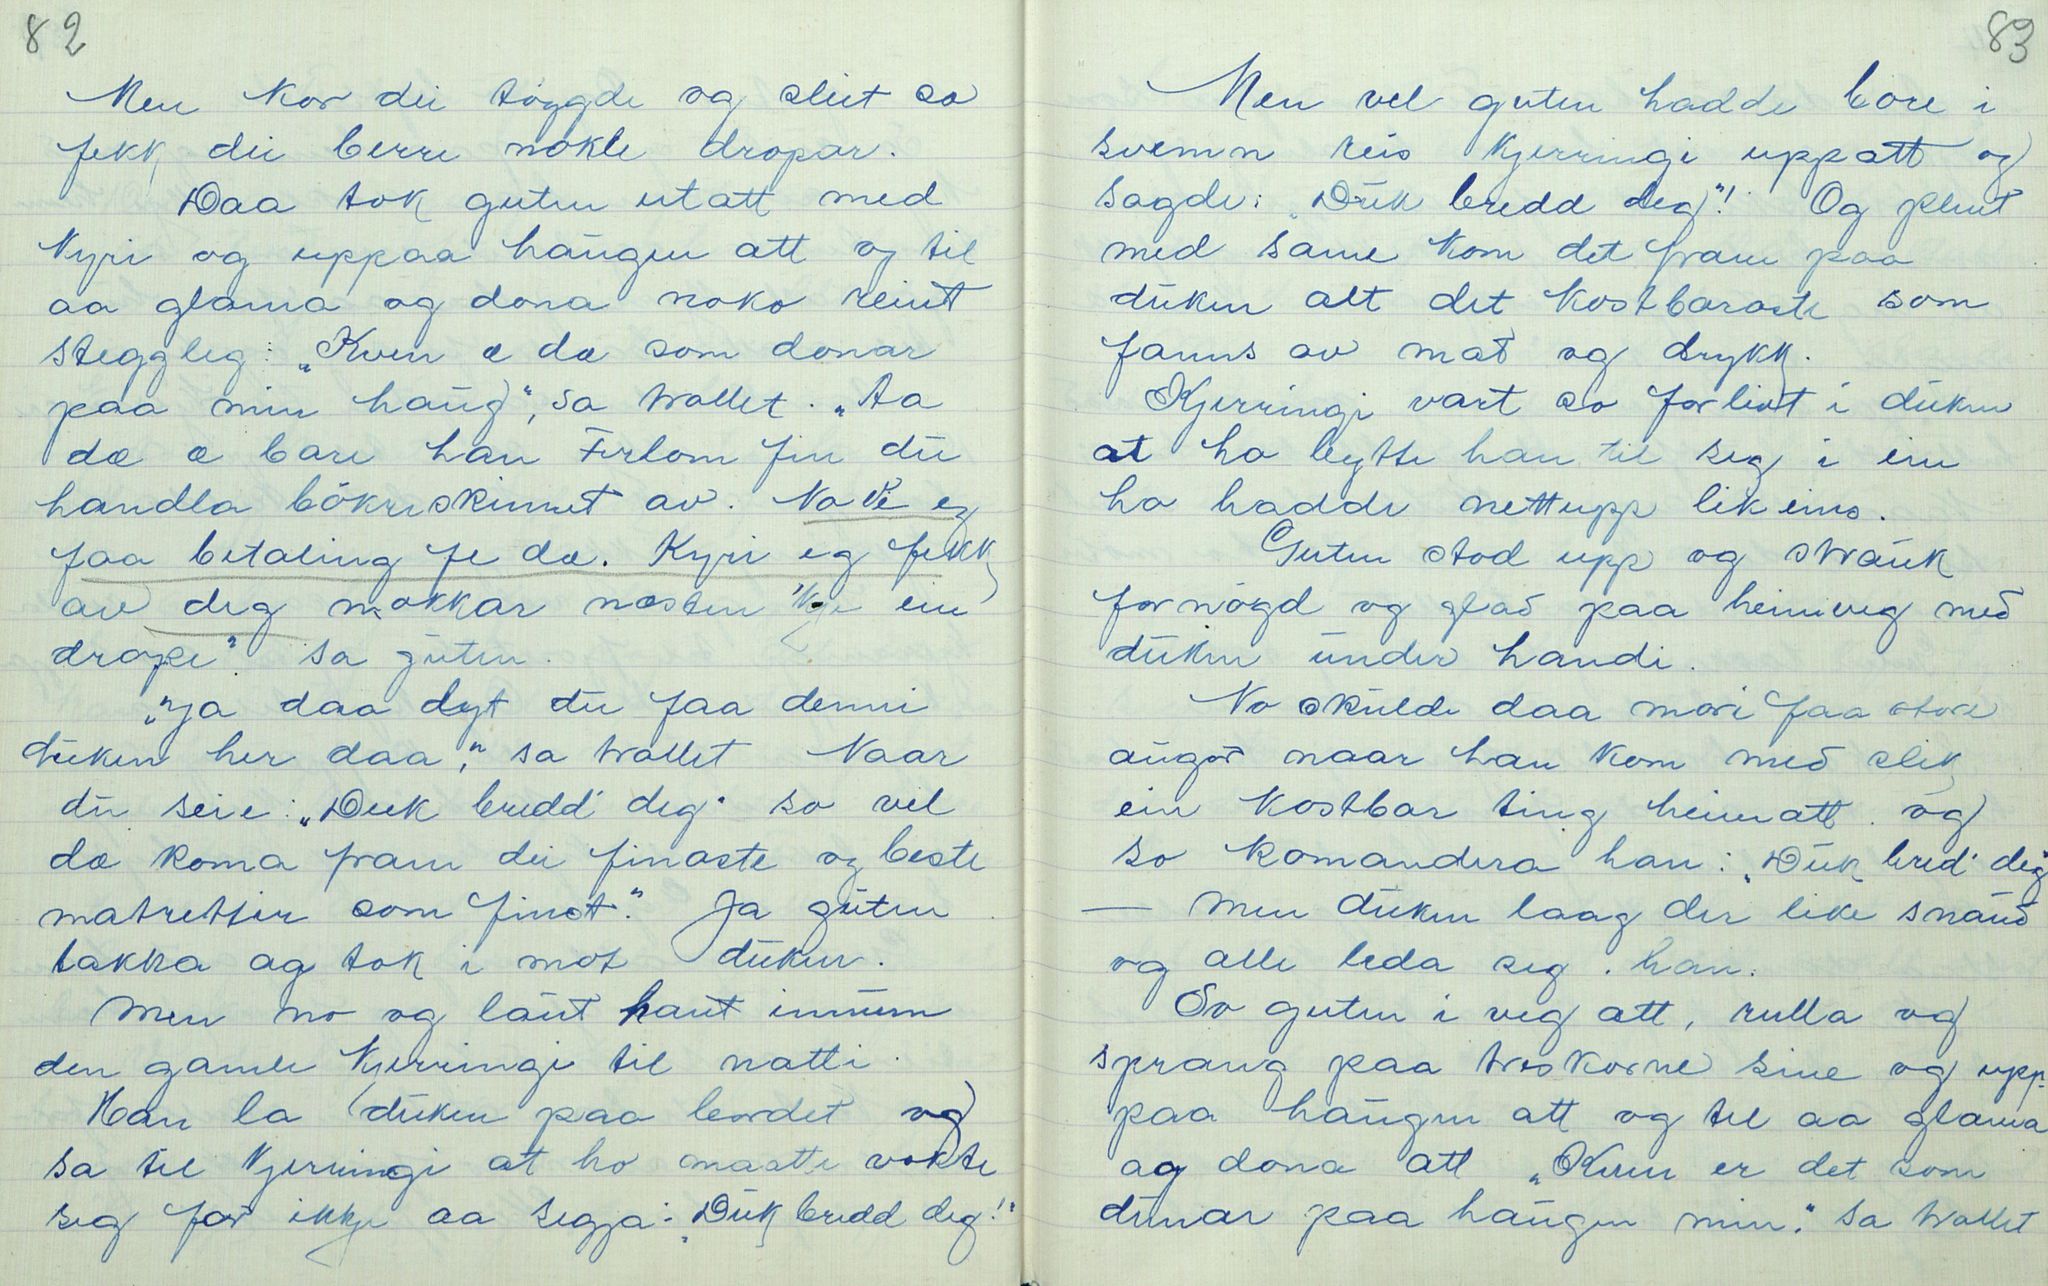 82
Men kor dei töygde og sleit so
fekk dei berre nokle dropar.
Daa tok guten utatt med
kyri og uppaa haugen att og til
aa glama og dona noko reint
steggleg: „Kven æ dæ som donar
paa min haug", sa trollet. „Aa
dæ æ bare han Ferlom fin du
handla bökreskinnet av. No vi eg
faa betaling fe dæ. Kyri eg fekk
av deg mokkar næsten 'kje ein
drope" sa guten.
„Ja daa dyt du faa denni
duken her daa," sa trollet Naar
du seie: „Duk bredd' deg" so vel
dæ koma fram dei finaste og beste
matretter som finst." Ja guten
takka og tok i mot duken.
Men no og laut haut innum
den gamle kjerringi til natti.
Han la duken paa bordet og
sa til kjerringi at ho maatte vokte
seg for ikkje aa segja: „Duk bredd deg!"
83
Men vel guten hadde bore i
svemn reis kjerringi uppatt og
sagde: „Duk bredd deg"! Og plent
med same kom det fram paa
duken alt det kostbaraste som
fanns av mat og drykk.
Kjerringi vart so forlivt i duken
at ho bytte han til seg i ein
ho hadde nettupp likeins.
Guten stod upp og strauk
fornögd og glad paa heimveg med
duken under handi.
No skulde daa mori faa store
augor naar han kom med slik
ein kostbar ting heimatt. og
so komandera han: „Duk bred' deg"
— men duken laag der like snaud
og alle leda seg. han.
So guten i veg att, rulla og
sprang paa treskorne sine og upp-
paa haugen att og til aa glama
og dona att „Kven er det som
dunar paa haugen min." sa trollet